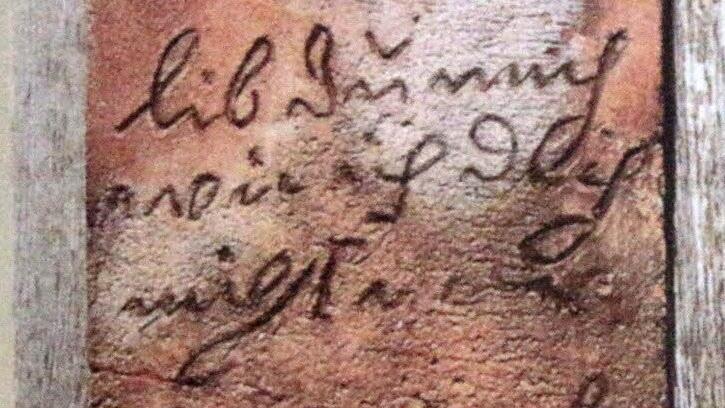 lib Dŭ mich
wie ich Dich
nicht